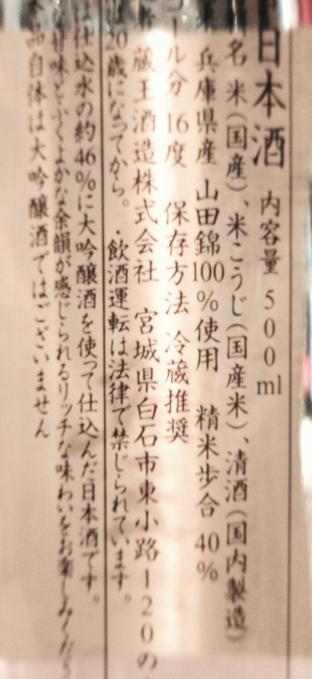 日本酒 内容量 500ml
名 米（国産）、米こうじ（国産米）、清酒（国内製造）
兵庫県産 山田錦100％使用 精米歩合 40％
コール分 16度 保存方法 冷蔵推奨
者 蔵王酒造株式会社 宮城県白石市東小路120の
20歳になってから。・飲酒運転は法律で禁じられています。
仕込水の約46％に大吟醸酒を使って仕込んだ日本酒です。
甘味とふくよかな余韻が感じられるリッチな味わいをお楽しみくださ
品自体は大吟醸酒ではございません